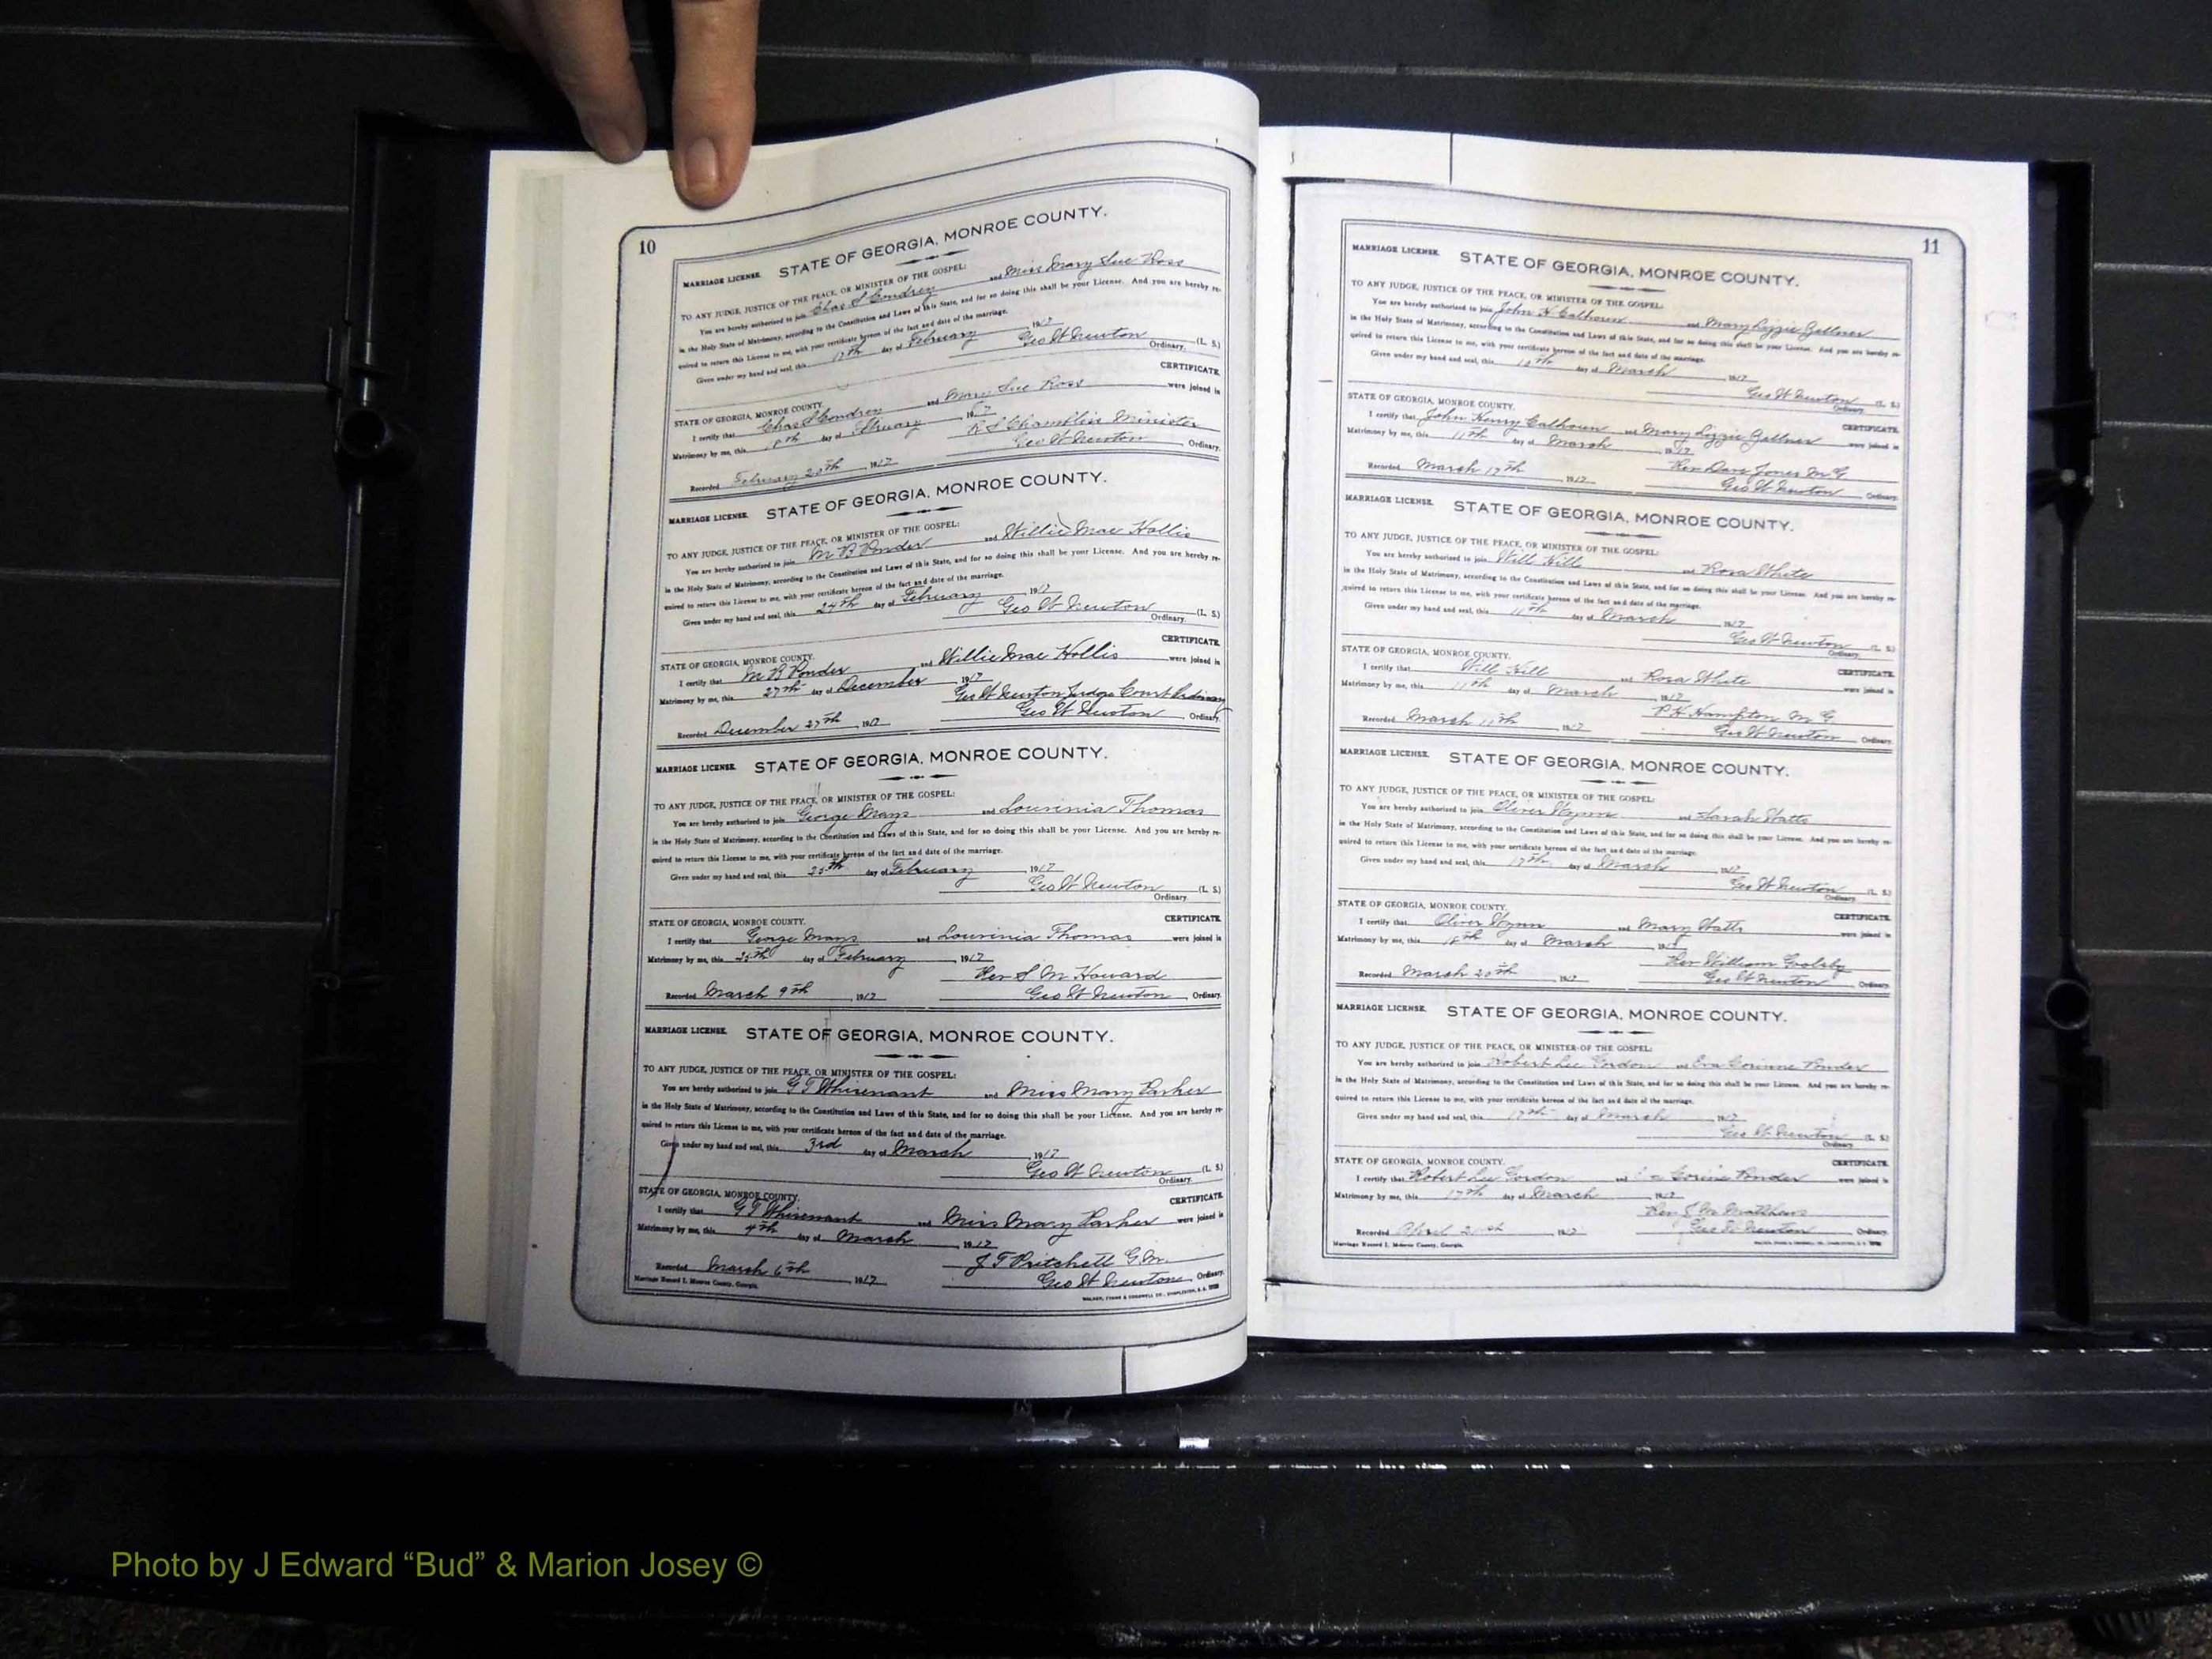 10
MARRIAGE LICENSE. STATE OF GEORGIA, MONROE COUNTY.
TO ANY JUDGE, JUSTICE OF THE PEACE, OR MINISTER OF THE GOSPEL:
You are hereby authorized to join Chas S Condren and Miss Mary Sue Ross
in the Holy State of Matrimony, according to the Constitution and Laws of this State, and for so doing this shall be your License. And you are hereby re-
quired to return this License to me, with your certificate hereon of the fact and date of the marriage.
Given under my hand and seal, this 17th day of February, 1917
Geo W Newton (L. S.)
Ordinary.
CERTIFICATE.
STATE OF GEORGIA, MONROE COUNTY.
I certify that Chas S Condren and Mary Sue Ross were joined in
Matrimony by me, this 18th day of February 1917
R S Chamblin Minister
Recorded February 20th, 1917 Geo W Newton Ordinary.
MARRIAGE LICENSE. STATE OF GEORGIA, MONROE COUNTY.
TO ANY JUDGE, JUSTICE OF THE PEACE, OR MINISTER OF THE GOSPEL:
You are hereby authorized to join M B Ponder and Willie Mae Hollis
in the Holy State of Matrimony, according to the Constitution and Laws of this State, and for so doing this shall be your License. And you are hereby re-
quired to return this License to me, with your certificate hereon of the fact and date of the marriage.
Given under my hand and seal, this 24th day of February, 1917
Geo W Newton (L. S.)
Ordinary.
CERTIFICATE.
STATE OF GEORGIA, MONROE COUNTY.
I certify that M B Ponder and Willie Mae Hollis were joined in
Matrimony by me, this 27th day of December, 1917
Geo W Newton Judge Court Ordinary
Recorded December 27th, 191 Geo W Newton, Ordinary.
MARRIAGE LICENSE. STATE OF GEORGIA, MONROE COUNTY.
TO ANY JUDGE, JUSTICE OF THE PEACE, OR MINISTER OF THE GOSPEL:
You are hereby authorized to join George Mays and Lourinia Thomas
in the Holy State of Matrimony, according to the Constitution and Laws of this State, and for so doing this shall be your License. And you are hereby re-
quired to return this License to me, with your certificate hereon of the fact and date of the marriage.
Given under my hand and seal, this 25th day of February, 1917
Geo W Newton (L. S.)
Ordinary.
STATE OF GEORGIA, MONROE COUNTY. CERTIFICATE.
I certify that George Mays and Lourinia Thomas were joined in
Matrimony by me, this 25th day of February, 1917
Rev S M Howard
Recorded March 9th, 1917 Geo W Newton, Ordinary.
MARRIAGE LICENSE. STATE OF GEORGIA, MONROE COUNTY.
TO ANY JUDGE, JUSTICE OF THE PEACE, OR MINISTER OF THE GOSPEL:
You are hereby authorized to join G T Whisenant and Miss Mary Parker
in the Holy State of Matrimony, according to the Constitution and Laws of this State, and for so doing this shall be your License. And you are hereby re-
quired to return this License to me, with your certificate hereon of the fact and date of the marriage.
Given under my hand and seal, this 3rd day of March, 1917
Geo W Newton (L. S.)
Ordinary.
STATE OF GEORGIA, MONROE COUNTY. CERTIFICATE
I certify that G T Whisenant and Miss Mary Parker were joined in
Matrimony by me, this 4th day of March, 1917
J T Pritchett G.M.
Recorded March 6th, 1917 Geo W Newton, Ordinary.
Marriage Record I. Monroe County, Georgia.
11
MARRIAGE LICENSE. STATE OF GEORGIA, MONROE COUNTY.
TO ANY JUDGE, JUSTICE OF THE PEACE, OR MINISTER OF THE GOSPEL:
You are hereby authorized to join John H Calhoun and Mary Lizzie Zellner
in the Holy State of Matrimony, according to the Constitution and Laws of this State, and for so doing this shall be your License. And you are hereby re-
quired to return this License to me, with your certificate hereon of the fact and date of the marriage.
Given under my hand and seal, this 10th day of March, 1917
Geo W Newton (L. S.)
Ordinary.
STATE OF GEORGIA, MONROE COUNTY. CERTIFICATE.
I certify that John Henry Calhoun and Mary Lizzie Zellner were joined in
Matrimony by me, this 11th day of March, 1917
Rev Dave Jones M G
Recorded March 17th, 1917 Geo W Newton Ordinary.
MARRIAGE LICENSE. STATE OF GEORGIA, MONROE COUNTY.
TO ANY JUDGE, JUSTICE OF THE PEACE, OR MINISTER OF THE GOSPEL:
You are hereby authorized to join Will Hill and Rosa White
in the Holy State of Matrimony, according to the Constitution and Laws of this State, and for so doing this shall be your License. And you are hereby re-
quired to return this License to me, with your certificate hereon of the fact and date of the marriage.
Given under my hand and seal, this 11th day of March 1917
Geo W Newton (L. S.)
Ordinary.
STATE OF GEORGIA, MONROE COUNTY. CERTIFICATE.
I certify that Will Hill and Rosa White were joined in
Matrimony by me, this 11th day of March, 1917
P H Hampton M. G.
Recorded March, 1917 Geo W Newton Ordinary.
MARRIAGE LICENSE. STATE OF GEORGIA, MONROE COUNTY.
TO ANY JUDGE, JUSTICE OF THE PEACE, OR MINISTER OF THE GOSPEL:
You are hereby authorized to join Oliver Wynn and Sarah Watts
in the Holy State of Matrimony, according to the Constitution and Laws of this State, and for so doing this shall be your License. And you are hereby re-
quired to return this License to me, with your certificate hereon of the fact and date of the marriage.
Given under my hand and seal, this 17th day of March, 1917
Geo W Newton (L. S.)
Ordinary.
STATE OF GEORGIA, MONROE COUNTY. CERTIFICATE.
I certify that Oliver Wynn and Mary Watts were joined in
Matrimony by me, this 18th day of March, 19
Rev William Goolsby
Recorded March 20th, 1917 Geo W Newton Ordinary.
MARRIAGE LICENSE. STATE OF GEORGIA, MONROE COUNTY.
TO ANY JUDGE, JUSTICE OF THE PEACE, OR MINISTER OF THE GOSPEL:
You are hereby authorized to join Robert Lee Gordon and Eva Corinne Ponder
in the Holy State of Matrimony, according to the Constitution and Laws of this State, and for so doing this shall be your License. And you are hereby re-
quired to return this License to me, with your certificate hereon of the fact and date of the marriage.
Given under my hand and seal, this 17th day of March, 1917
Geo W Newton (L. S.)
Ordinary
STATE OF GEORGIA, MONROE COUNTY. CERTIFICATE.
I certify that Robert Lee Gordon and Corine Ponder were joined in
Matrimony by me, this 17th day of March, 1917
Rev J M Matthews
Recorded April, 1917 Geo W Newton Ordinary
Marriage Record I. Monroe County, Georgia.
Photo by J Edward “Bud” & Marion Josey ©